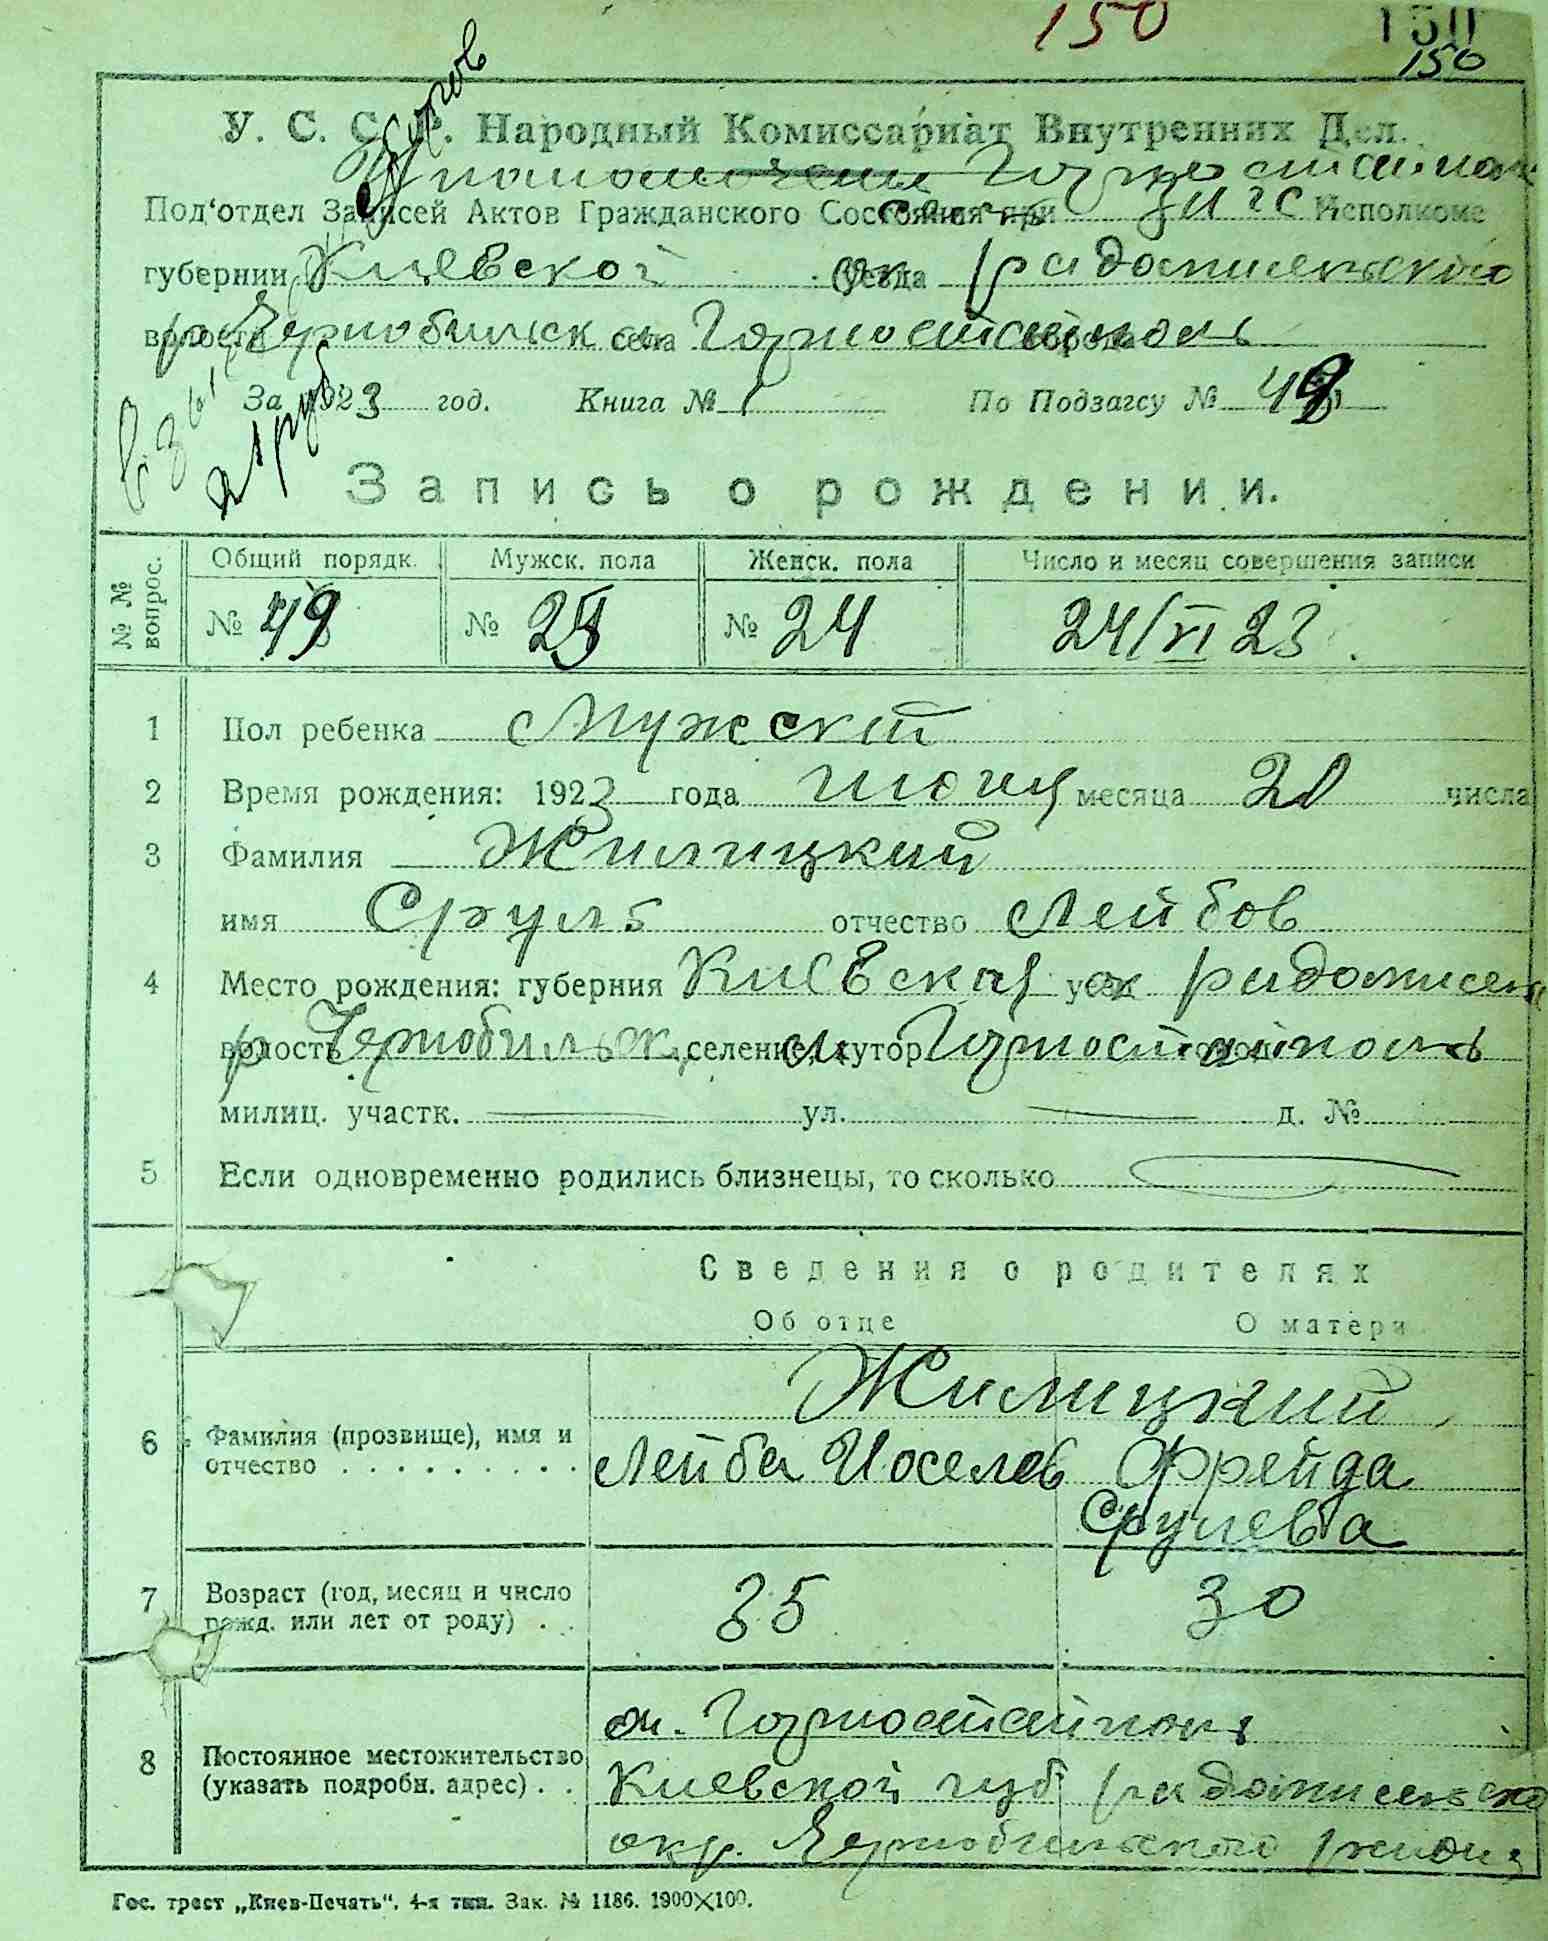 150
150
150
У. С. С. Р. Народный Комиссариат Внутренних Дел.
Горностайпол
Под'отдел Записей Актов Гражданского Состояния при ЗАГС Исполкоме
губернии Киевской уезда ок Радомисльского
волости р Чернобильск села м Горностайполь города
За 1923 год. Книга № 1 По Подзагсу № 49
взы
2 руб
Запись о рождении.
№ № вопрос.
Общий порядк. Мужск. пола Женск. пола Число и месяц совершения записи
№ 49 № 25 № 24 24/VI 23
1 Пол ребенка Мужский
2 Время рождения: 1923 года июня месяца 20 числа
3 Фамилия Жилицкий
имя Сруль отчество Лейбов
4 Место рождения: губерния Киевская уезд ок Радомисель
волость р Чернобильск, селение, м хутор Горностайполь город
милиц. участк. ул. д. №
5 Если одновременно родились близнецы, то сколько
Сведения о родителях
Об отце О матери
Жилицкий
6 Фамилия (прозвище), имя и отчество . . . . . . . . . Лейба Иоселев Фрейда
Срулева
7 Возраст (год, месяц и число рожд. или лет от роду) . . 35 30
м. Горностайполь
8 Постоянное местожительство (указать подробн. адрес) . . Киевской губ Радомисельско
окр. Чернобильского района
Гос. трест „Киев-Печать“. 4-я тип. Зак. № 1186. 1900×100.